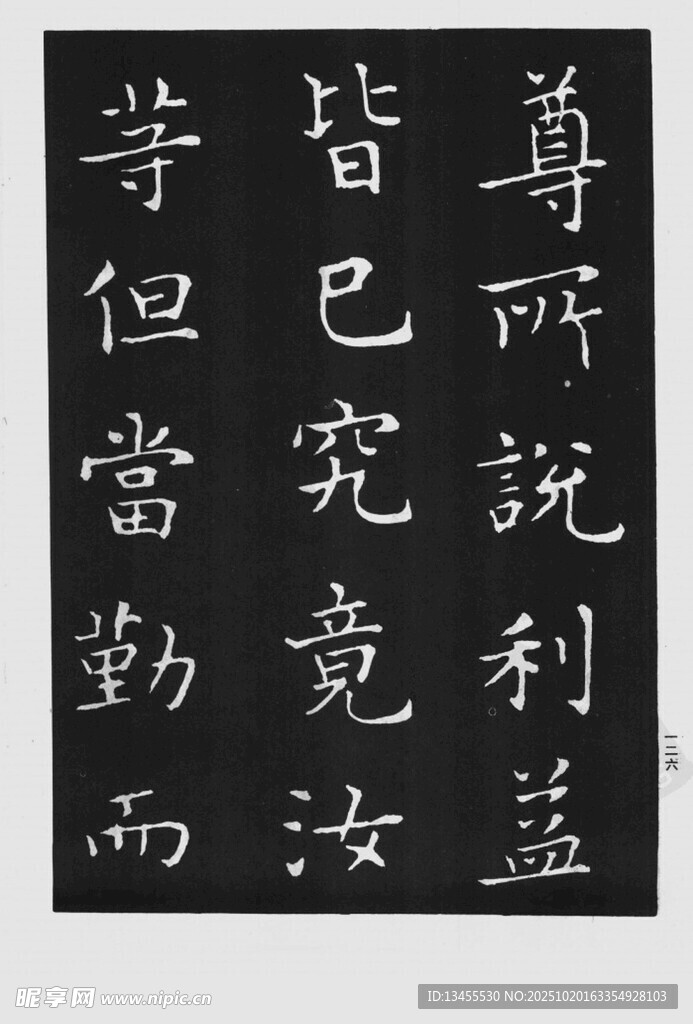 尊所說利益
皆已究竟汝
等但當勤而
一二六
昵享网 www.nipic.cn
ID:13455530 NO:20251020163354928103